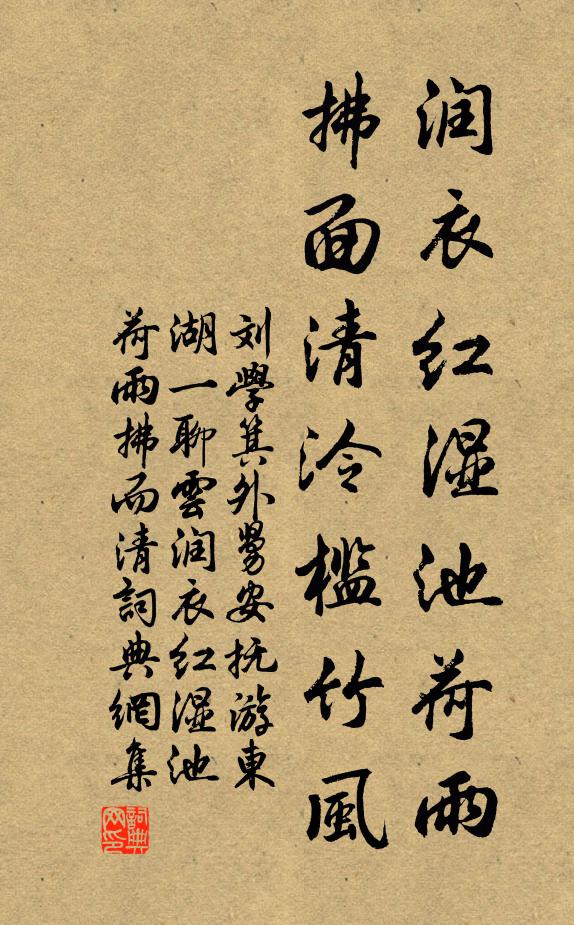 润衣红湿池荷雨
拂面清泠槛竹風
刘學箕外舅安抚游東
湖一聊雲润衣红湿池
荷雨拂而清詞典網集
詞典网印